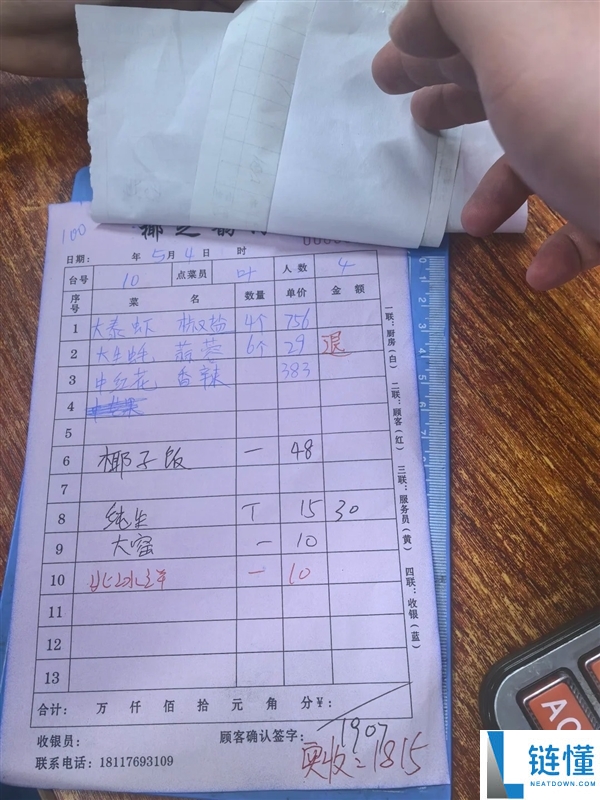 100
椰之韵
日期： 年 5 月 4 日 时
台号 10 点菜员 叶 人数 4
序号 菜名 数量 单价 金额
1 大泰虾 椒盐 4个 756
2 大生蚝 蒜蓉 6个 29 退
3 中红花 香辣 383
4
5
6 椰子饭 一 48
7
8 纯生 T 15 30
9 大窑 一 10
10 北冰洋 一 10
11
12
13
合计： 万 仟 佰 拾 元 角 分 ¥：
1907
收银员： 顾客确认签字：
实收：1815
联系电话：18117693109
一联：厨房（白） 二联：顾客（红） 三联：服务员（黄） 四联：收银（蓝）
AC
链懂
NEATDOWN.COM